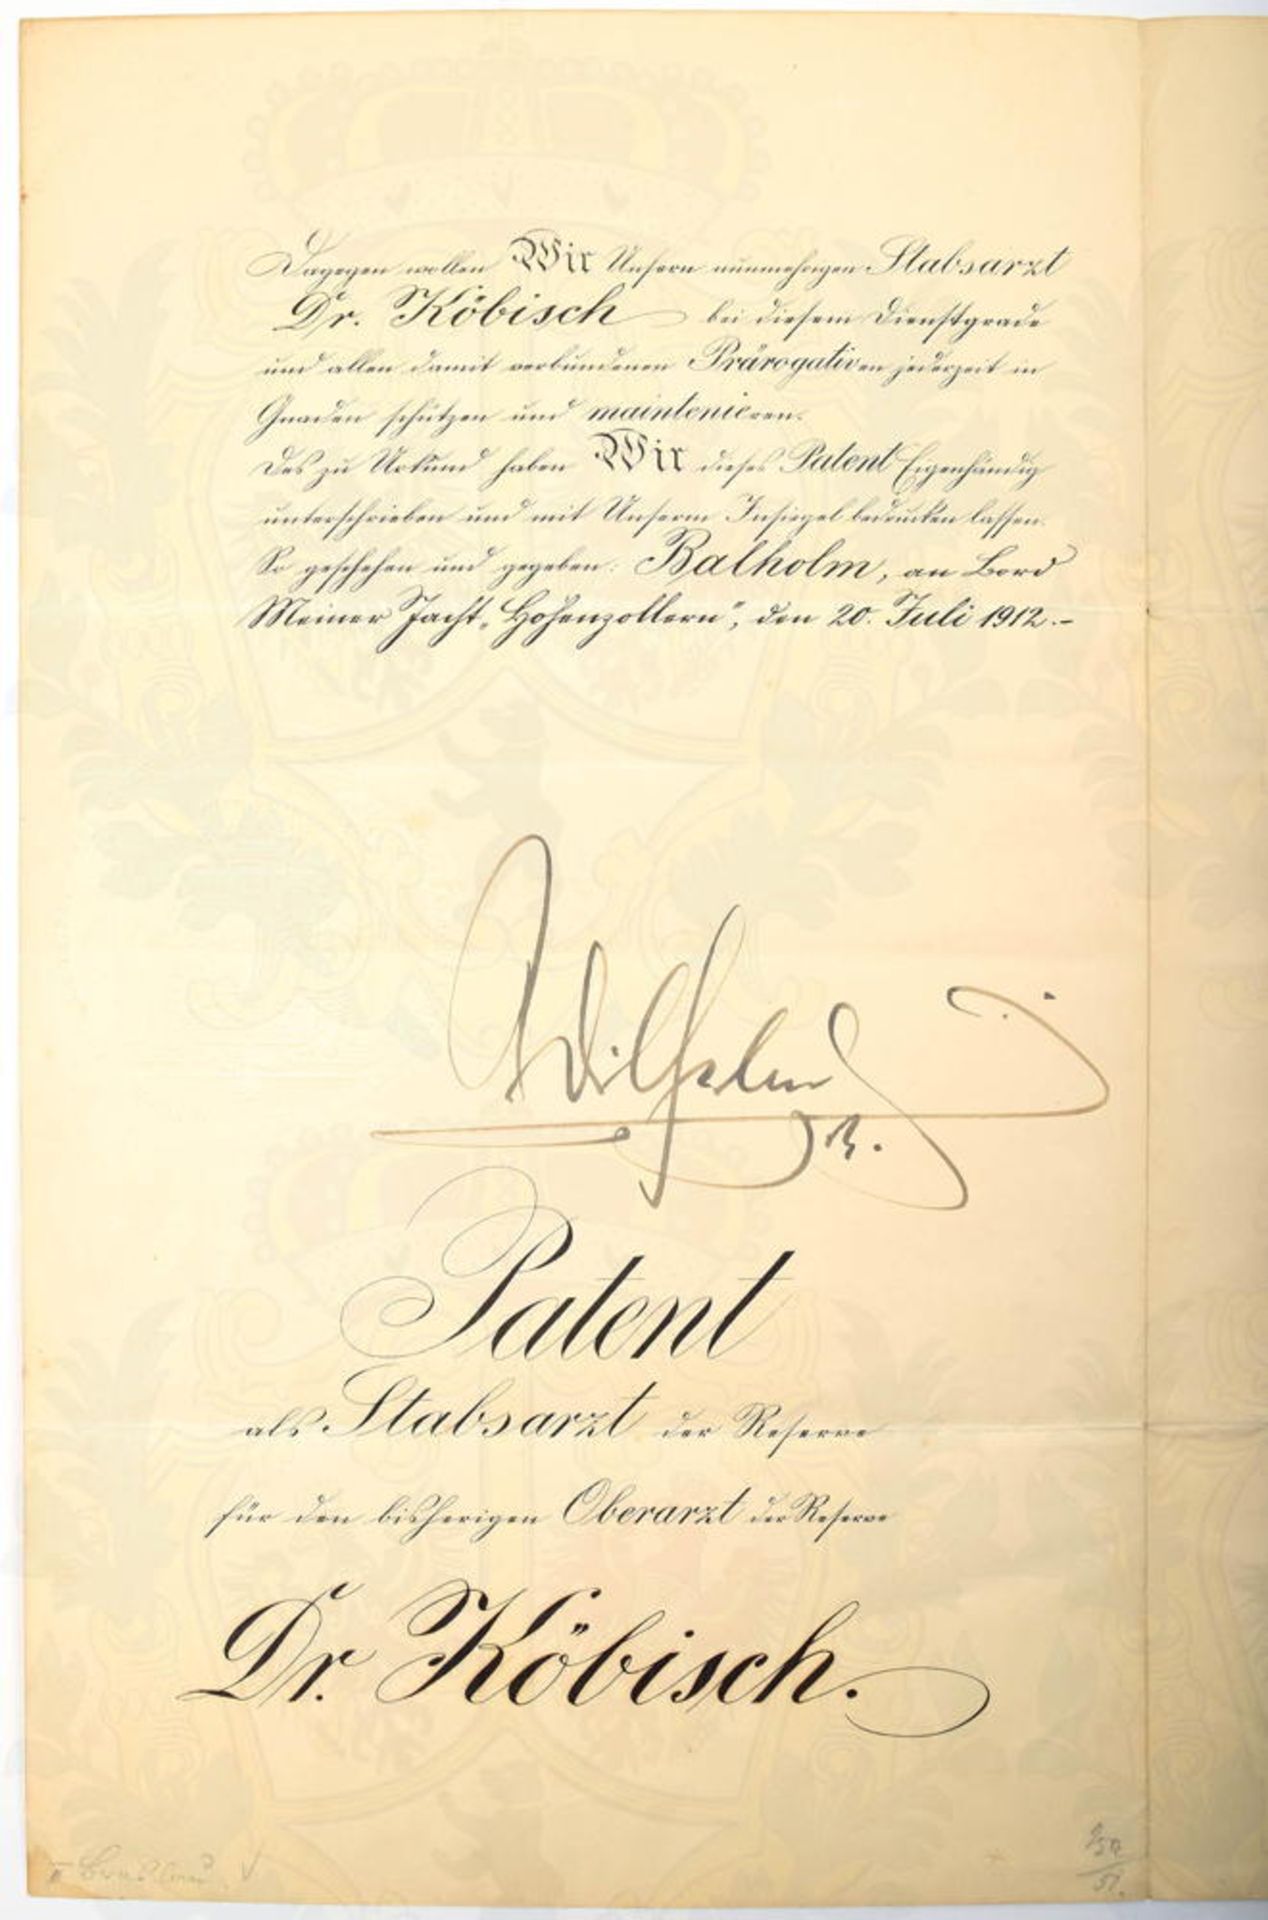 Dagegen wollen Wir Unsern nunmehrigen Stabsarzt
Dr. Köbisch bei diesem Dienstgrade
und allen damit verbundenen Prärogativen jederzeit in
Gnaden schützen und maintenieren.
Des zu Urkund haben Wir dieses Patent Eigenhändig
unterschrieben und mit Unserm Insiegel bedrucken lassen.
So geschehen und gegeben: Balholm, an Bord
Meiner Jacht „Hohenzollern", den 20. Juli 1912.-
Wilhelm
R.
Patent
als Stabsarzt der Reserve
für den bisherigen Oberarzt der Reserve
Dr. Köbisch.